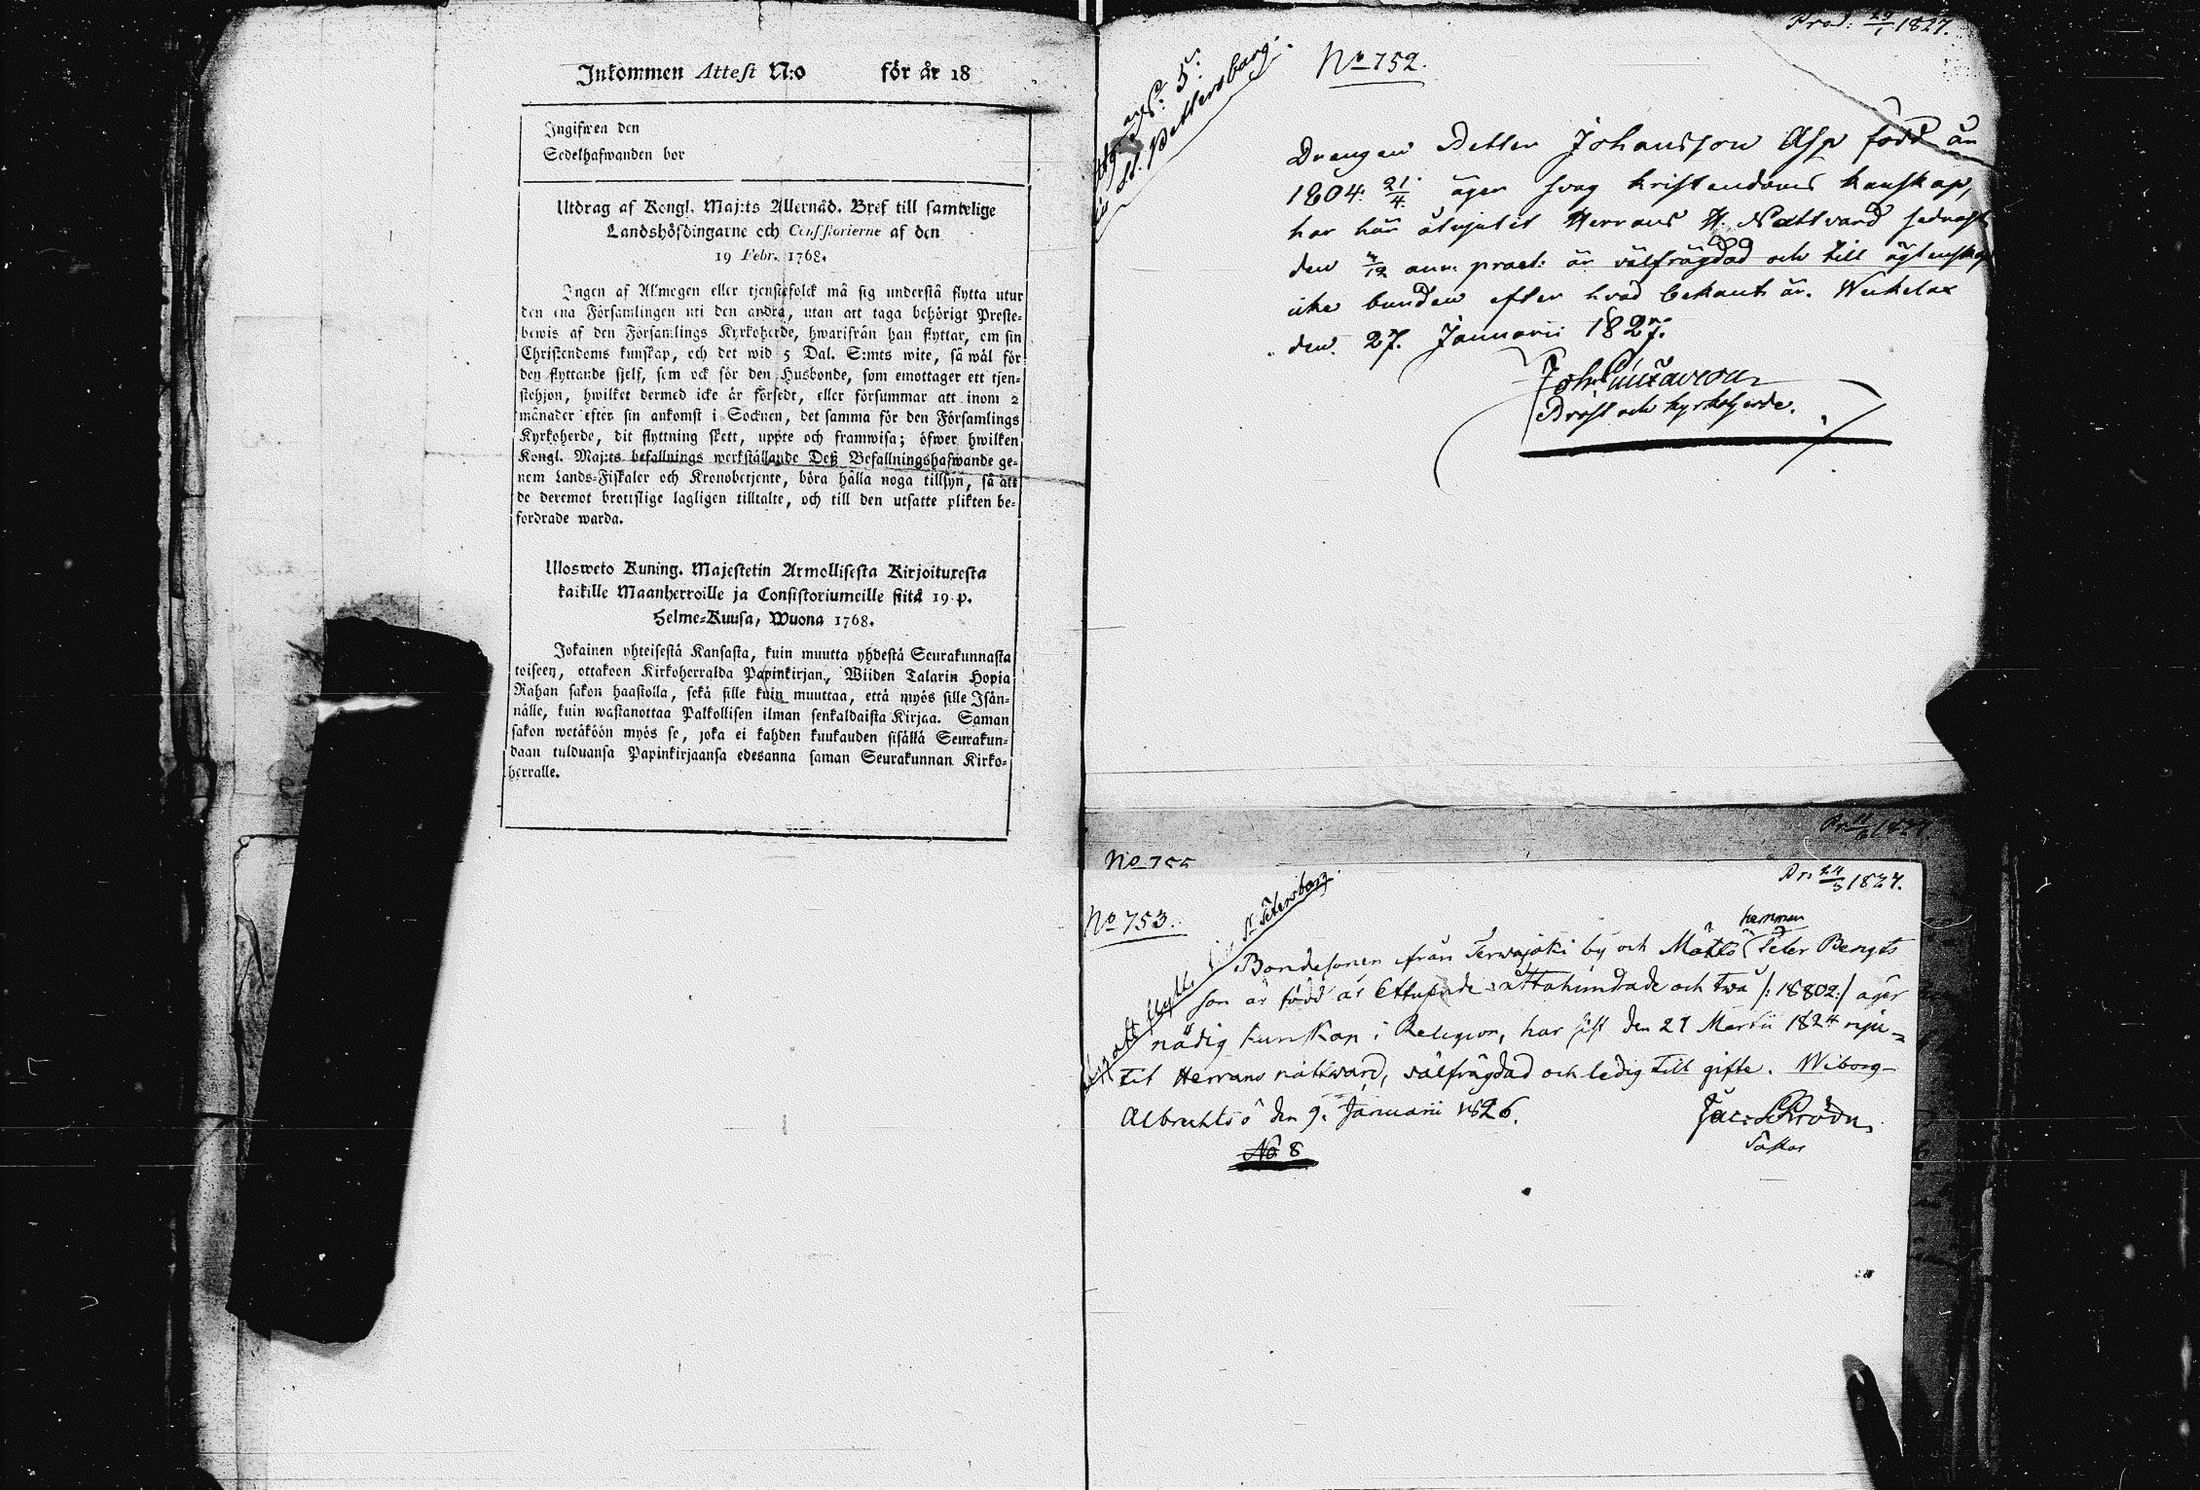 Inkommen Attest N:o för år 18
Ingifwen den
Sedelhafwanden bor
Utdrag af Kongl. Maj:ts Allernåd. Bref till samtelige
Landshöfdingarne och Consistorierne af den
19 Febr. 1768.
Ingen af Allmogen eller tjenstefolck må sig understå flytta utur
den ena Församlingen uti den andra, utan att taga behörigt Preste-
bewis af den Församlings Kyrkoherde, hwarifrån han flyttar, om sin
Christendoms kunskap, och det wid 5 Dal. S:mts wite, så wäl för
den flyttande sjelf, som ock för den Husbonde, som emottager ett tjen-
stehjon, hwilket dermed icke är försedt, eller försummar att inom 2
månader efter sin ankomst i Socknen, det samma för den Församlings
Kyrkoherde, dit flyttning skett, uppte och framwisa; öfwer hwilken
Kongl. Maj:ts befallnings werkställande Deß Befallningshafwande ge-
nom Lands-Fiskaler och Kronobetjente, böra hålla noga tillsyn, så att
de deremot brottslige lagligen tilltalte, och till den utsatte plikten be-
fordrade warda.
Ulosweto Kuning. Majestetin Armollisesta Kirjoituxesta
kaikille Maanherroille ja Consistoriumeille siitä 19 p.
Helme-Kuusa, Wuona 1768.
Jokainen yhteisestä Kansasta, kuin muutta yhdestä Seurakunnasta
toiseen, ottakoon Kirkoherralda Papinkirjan, Wiiden Talarin Hopia
Rahan sakon haastolla, sekä sille kuin muuttaa, että myös sille Isän-
nälle, kuin wastanottaa Palkollisen ilman senkaldaista Kirjaa. Saman
sakon wetäköön myös se, joka ei kahden kuukauden sisällä Seurakun-
daan tulduansa Papinkirjaansa edesanna saman Seurakunnan Kirko-
herralle.
Prod: 1827.
No 752.
St. Pettersburg.
Drengen Petter Johansson Asp född år
1804. 21/4. äger svag kristendoms kunskap,
har här åtnjutit Herrans H. Nattvard sednast
den ann: praet: är välfrägdad och till ägtenskap
icke bunden efter hvad bekant är. Weckelax
den 27. Januarii 1827.
Prost och kyrkoherde.
No 755
Pr: 24/3 1827.
No 753.
St Petersborg
hemman
Bondesonen från Terwajoki by och Mattö Peter Bengts
son är född år Ettusende åttahundrade och twå /: 18802:/ äger
nödig kunskap i Religion, har sist den 21 Martii 1824 nju-
tit Herrans nattward, välfrägdad och ledig till gifte. Wiborg
den 9. Januarii 1826.
Pastor
No 8